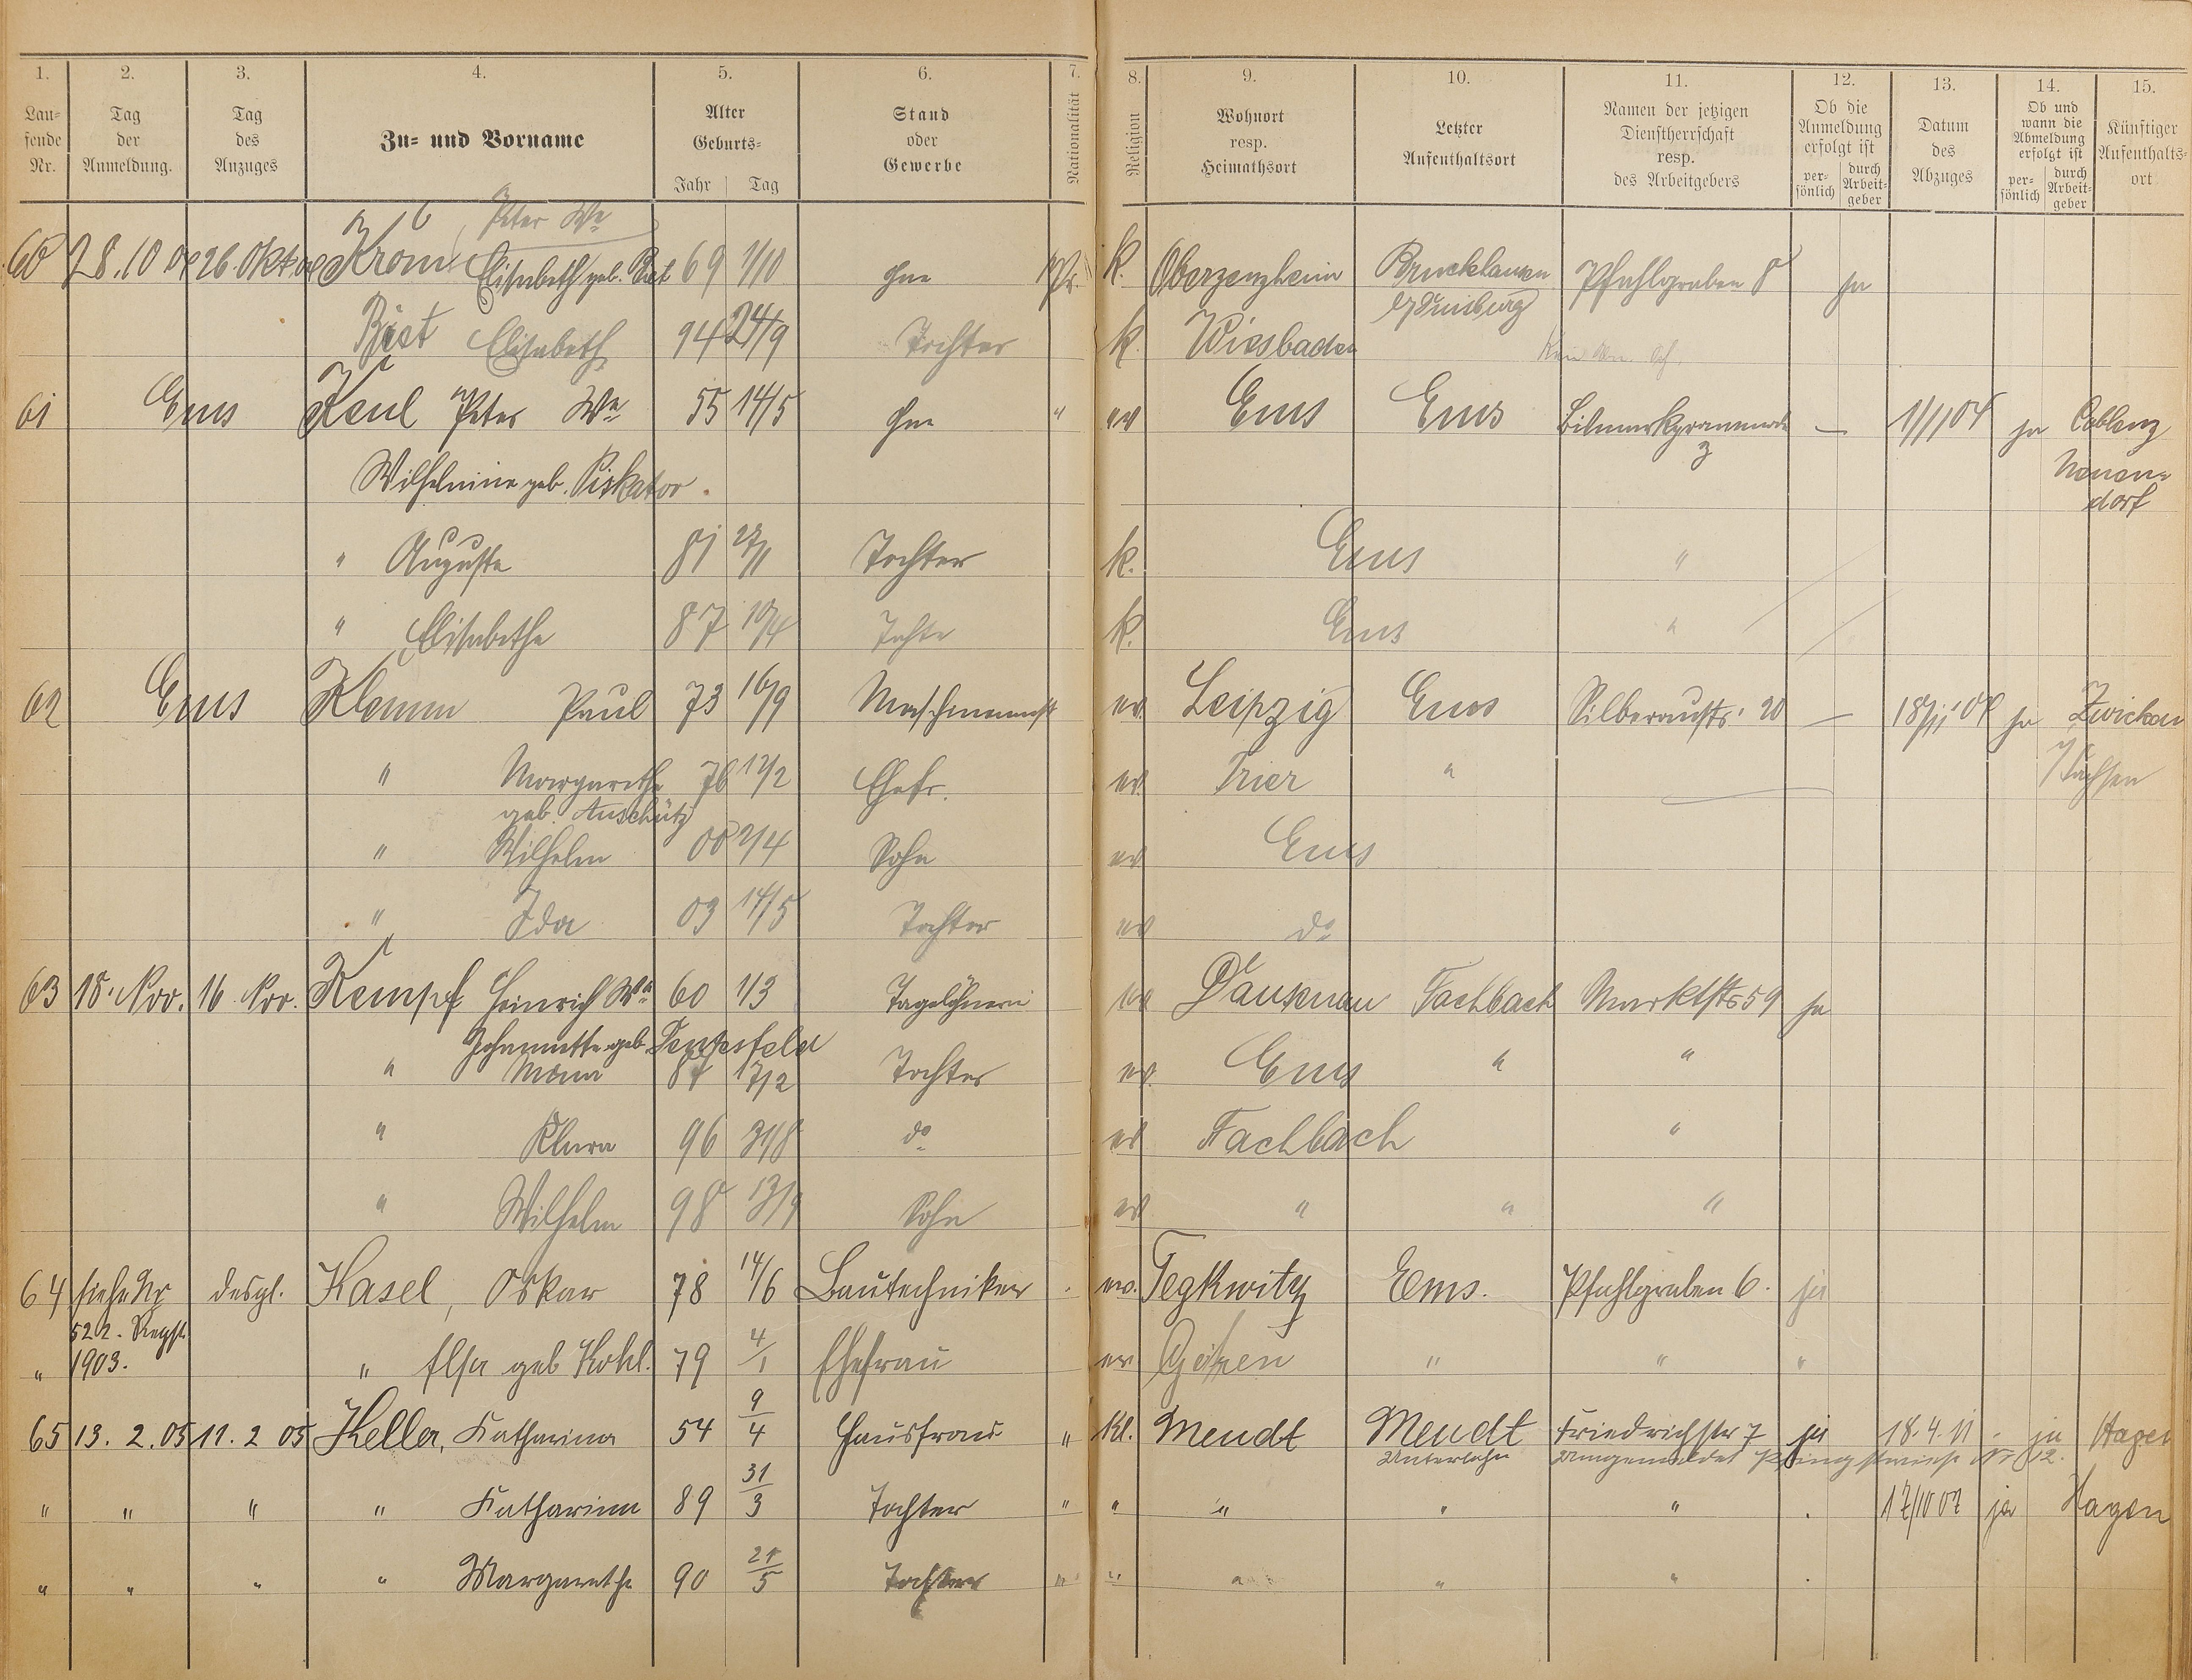 1. 2. 3. 4. 5. 6. 7. 8. 9. 10. 11. 12. 13. 14. 15.
Lau-
fende
Nr.
Tag
der
Anmeldung.
Tag
des
Anzuges
Zu- und Vorname
Alter
Geburts-
Jahr Tag
Stand
oder
Gewerbe
Nationalität
Religion
Wohnort
resp.
Heimathsort
Letzter
Aufenthaltsort
Namen der jetzigen
Dienstherrschaft
resp.
des Arbeitgebers
Ob die
Anmeldung
erfolgt ist
per-
sönlich
durch
Arbeit-
geber
Datum
des
Abzuges
Ob und
wann die
Abmeldung
erfolgt ist
per-
sönlich
durch
Arbeit-
geber
Künftiger
Aufenthalts-
ort
Peter We
60 28.10 04 26. Okt. 04 Krom Elisabeth geb. 69 1/10 Pr. k. Oberzeuzheim Bruckhausen Pfahlgraben 8 ja
b/Duisburg
Elisabeth 94 24/9 Tochter k. Wiesbaden
61 Ems Keul Peter We 55 14/5 " ev Ems Ems 3 — 1/1 04 ja Coblenz
Wilhelmine geb. Piskator. Neuen-
dorf
" Auguste 81 27/11 Tochter k. Ems "
" Elisabethe 87 10/4 Tochter k. Ems "
62 Ems Klemm Paul 73 16/9 Maschinenmstr ev. Leipzig Ems Silberaustr. 20 — 18/11 04 ja Zwickau
" Margarethe 76 12/2 Ehefr. ev. Trier " i/Sachsen
geb. Anschütz
" Wilhelm 00 2/4 Sohn ev Ems
" Ida 03 14/5 Tochter ev do
63 18. Nov. 16. Nov. Kempf Heinrich We 60 1/3 Tagelöhnerin ev Dausenau Fachbach Marktstr 59 ja
Johannette geb.
" 87 17/2 Tochter ev. Ems " "
" Klara 96 31/8 do ev Fachbach "
" Wilhelm 98 13/9 Sohn ev " " "
64 siehe Nr desgl. Kasel, Oskar 78 14/6 Bautechniker . ev. Tegkwitz Ems. Pfahlgraben 6. ja
522. Regstr.
" 1903. " Elsa geb Kohl. 79 4/1 Ehefrau ev " " "
65 13. 2. 05 11. 2 05 Keller, Katharina 54 9/4 Hausfrau " kl. Mendt Mendt Friedrichstr 7 ja 18.4.11 - ja Hagen
Unterlahn Umgemeldet Pfingstwiese Nr 12.
" " " " Katharina 89 31/3 Tochter " " " " " . 17/10 07 ja Hagen
" " " " Margarethe 90 21/5 Tochter " " " " " .